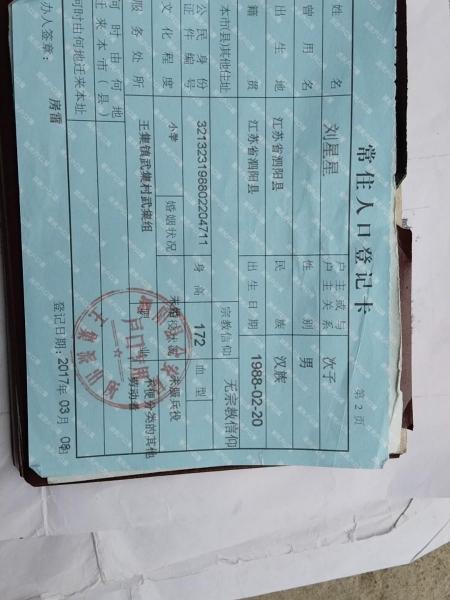 常住人口登记卡
第 2 页
姓名 刘星星 户主或与户主关系 次子
曾用名 性别 男
出生地 江苏省泗阳县 民族 汉族
籍贯 江苏省泗阳县 出生日期 1988-02-20
本市(县)其他住址 宗教信仰 无宗教信仰
公民身份证件编号 321323198802204711 身高 172 血型
文化程度 小学 婚姻状况 未婚 兵役状况 未服兵役
服务处所 王集镇武集村武集组 职业 不便分类的其他劳动者
何时由何地迁来本市(县)
何时由何地迁来本址
办人签章: 房雷 登记日期:2017年 03月 08日